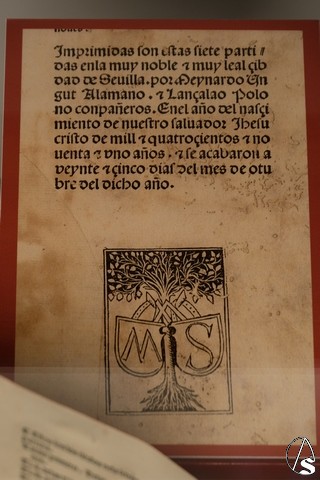 Imprimidas son estas siete parti⸗
das enla muy noble ⁊ muy leal çib
dad de Seuilla. por Meynardo Un
gut Alamano. ⁊ Lançalao Polo
no conpañeros. Enel año del nasçi
miento de nuestro saluador Jhesu
cristo de mill ⁊ quatroçientos ⁊ no
uenta ⁊ vno años. ⁊ se acabaron a
veynte ⁊ çinco dias del mes de otu
bre del dicho año.
M S